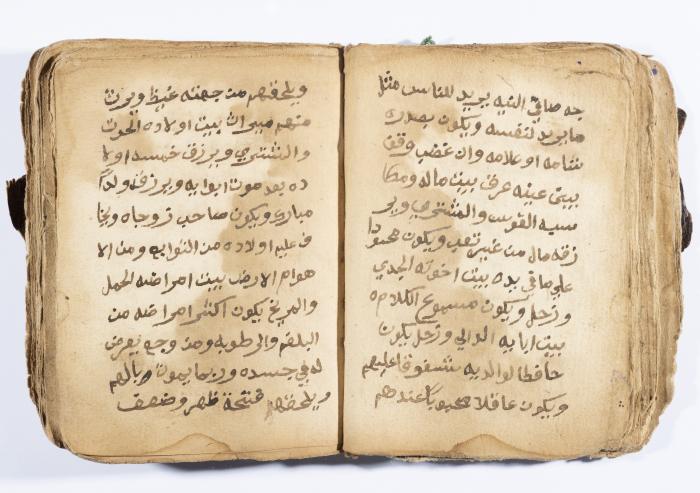 جه صافي النيه يريد للناس مثل
ما يريد لنفسه ويكون بصدره
شامه او علامه وان غضب وقف
بيتي عينه عرق بيت ماله ومكا
سبه القوس والمشتري وير
زقه مال من غير تعب ويكون محسودا
علي ما في يده بيت اخوته الجدي
وزحل ويكون مسموع الكلام
بيت ابايه الدالي وزحل يكون
حافظا لوالديه شفوقا عليهم
ويكون عاقلا محبوبا عندهم
ويلحقهم من جهته غيظ ويرث
منهم ميراث بيت اولاده الحوت
والمشتري ويرزق خمسه اولا
ده بعد موت ابوايه ويرزق ولدا
مبارك ويكون صاحب زوجاه ويخا
ف عليه اولاده من التوابع ومن الا
هوام الارض بيت امراضه الحمل
والمريخ يكون اكثر امراضه من
البلغم والرطوبه ومن وجع يعرض
له في جسده وربما يموت
ويلحقهم ظهر وضعف